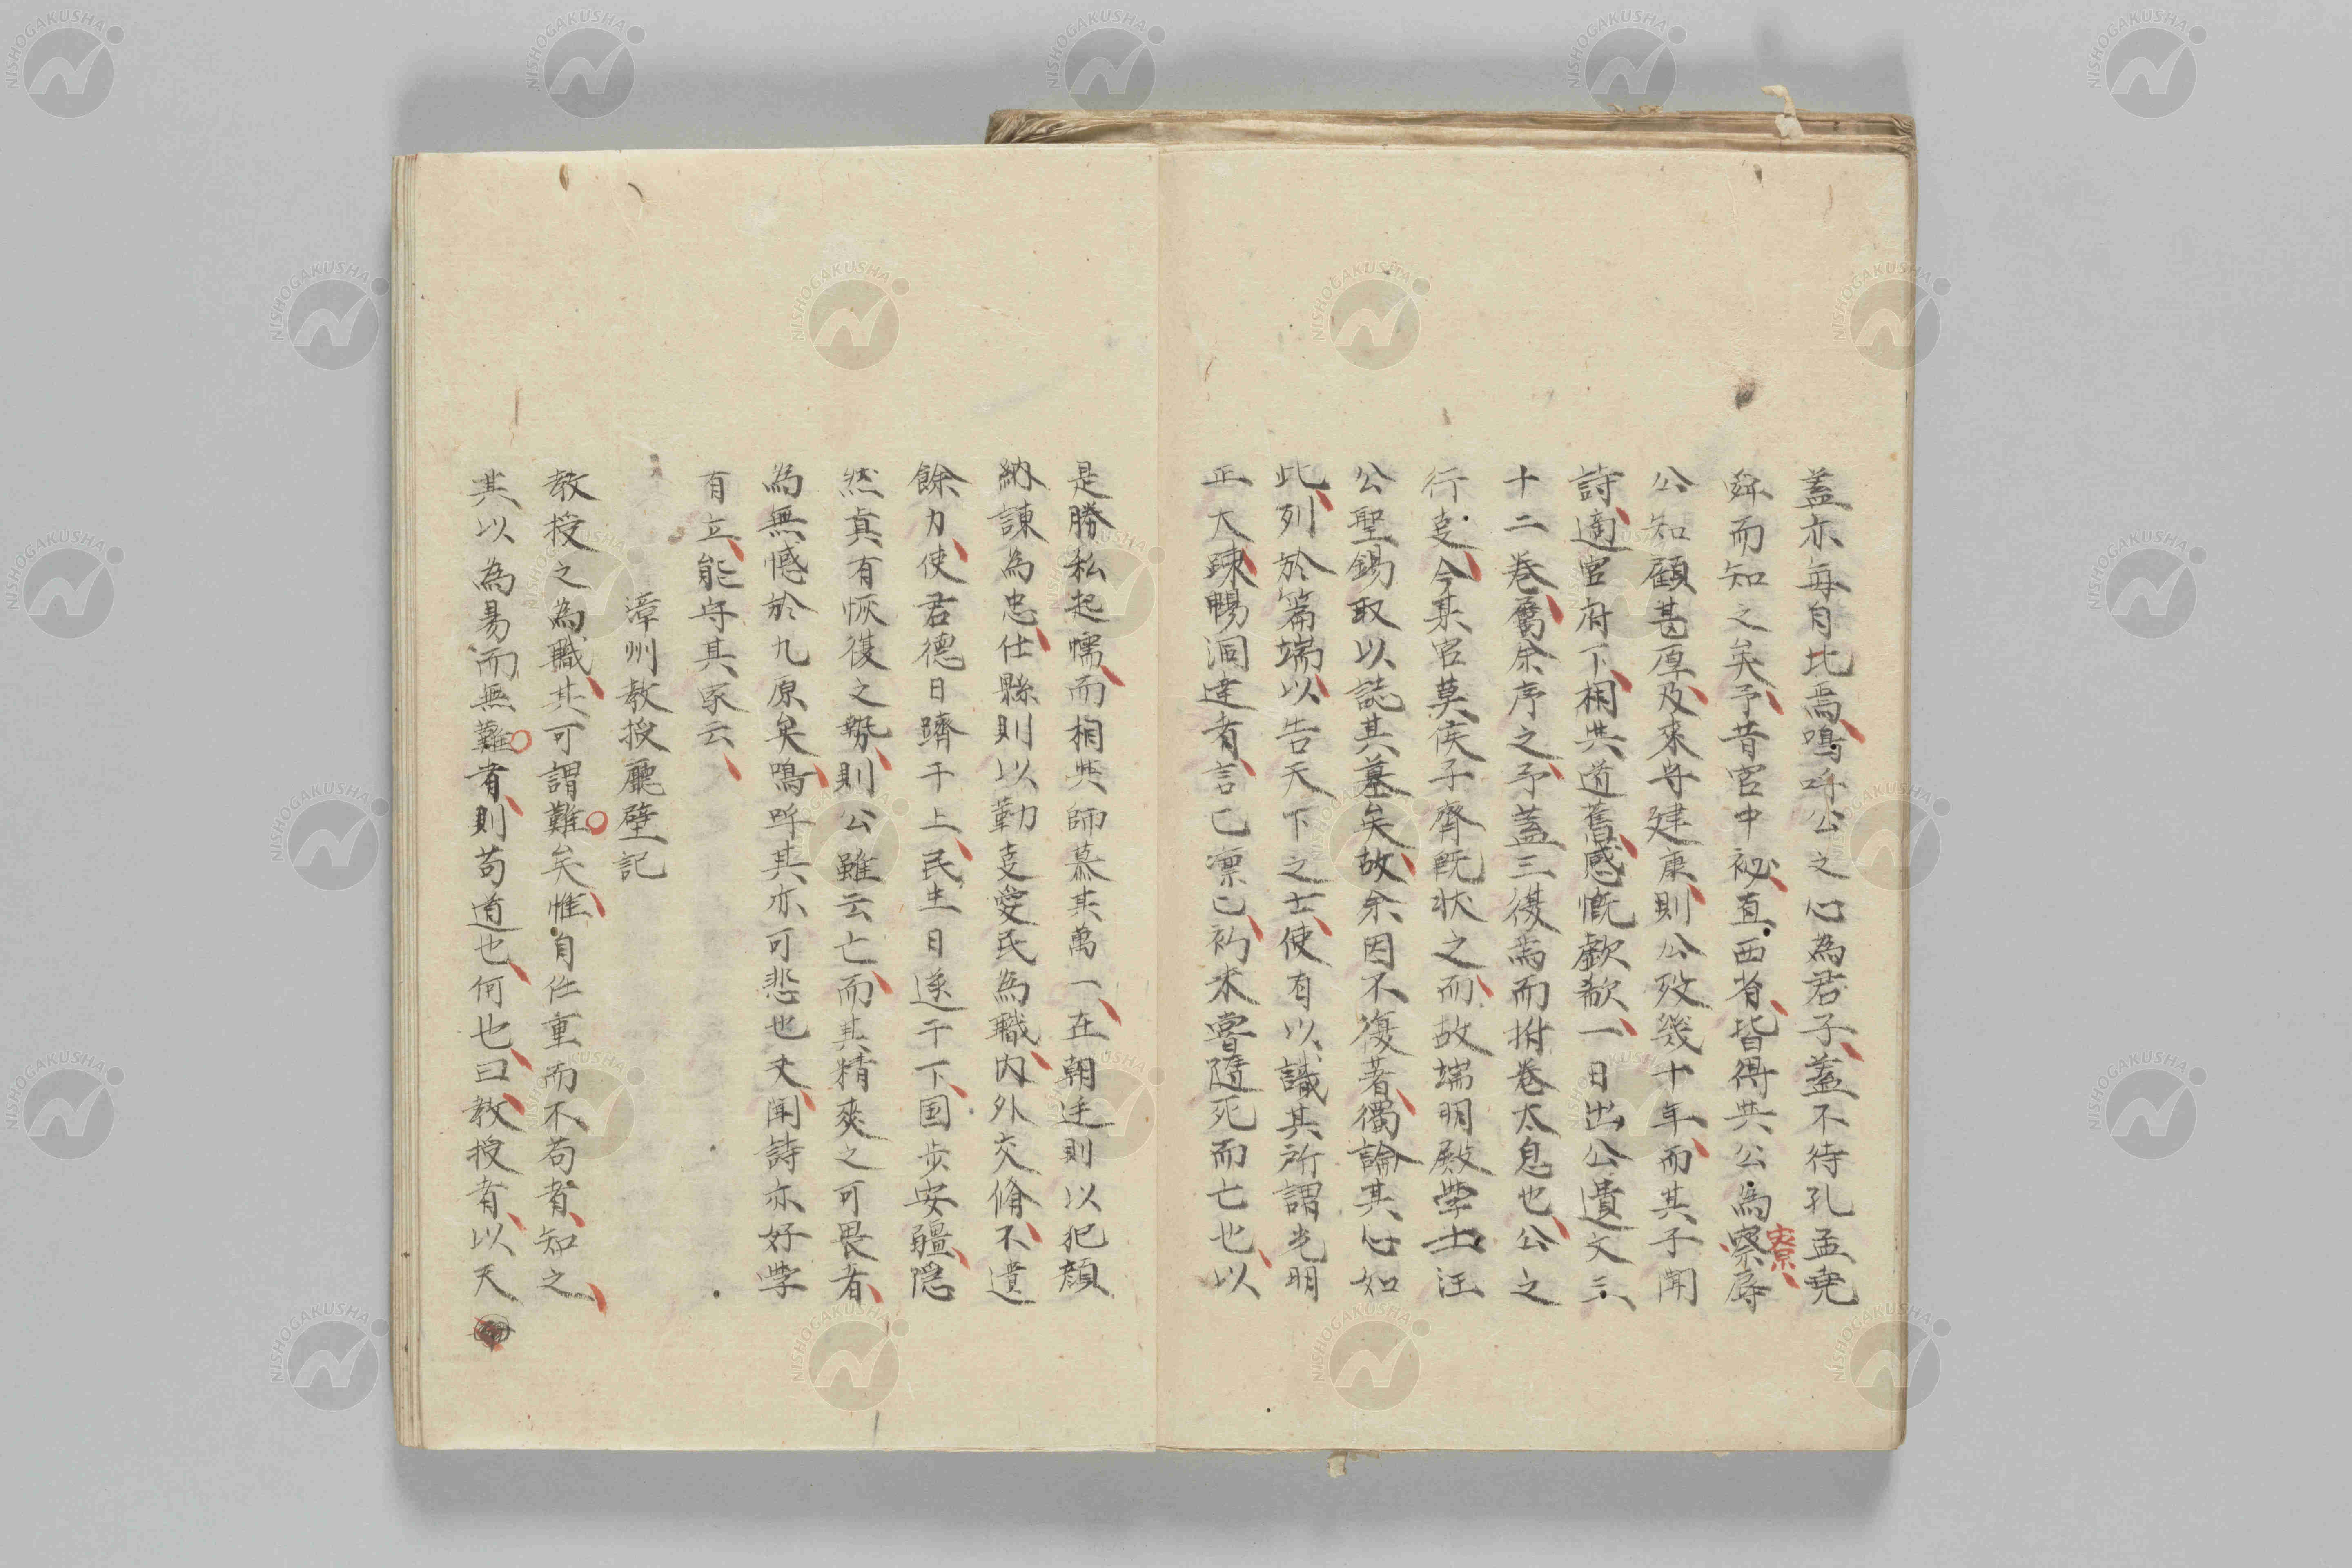 蓋亦每自比焉嗚呼公之心為君子蓋不待孔孟堯
舜而知之矣予昔官中祕直西省皆得共公為寮辱
寮
公知顧甚厚及來守建康則公歿幾十年而其子聞
詩適官府下相共道舊感慨歔欷一日出公遺文三
十二卷屬余序之予蓋三復焉而拊卷太息也公之
行�事今某官莫侯子齊既状之而故端明殿學士汪
公聖錫取以誌其墓矣故余因不復著獨論其心如
此列於篇端以告天下之士使有以識其所謂光明
正大踈暢洞達者言已稟已初未嘗隨死而亡也以
是勝私起懦而相共師慕其萬一在朝廷則以犯顔
納諫為忠仕縣則以勤事愛民為職内外交脩不遺
餘力使君德日躋于上民生日遂于下国歩安疆隠
然真有恢復之勢則公雖云亡而其精爽之可畏者
為無憾於九原矣嗚呼其亦可悲也夫聞詩亦好學
有立能守其家云
漳州教授廳壁記
教授之為職其可謂難矣惟自任重而不苟者知之
其以為易而無難者則苟道也何也曰教授者以天
NISHOGAKUSHA